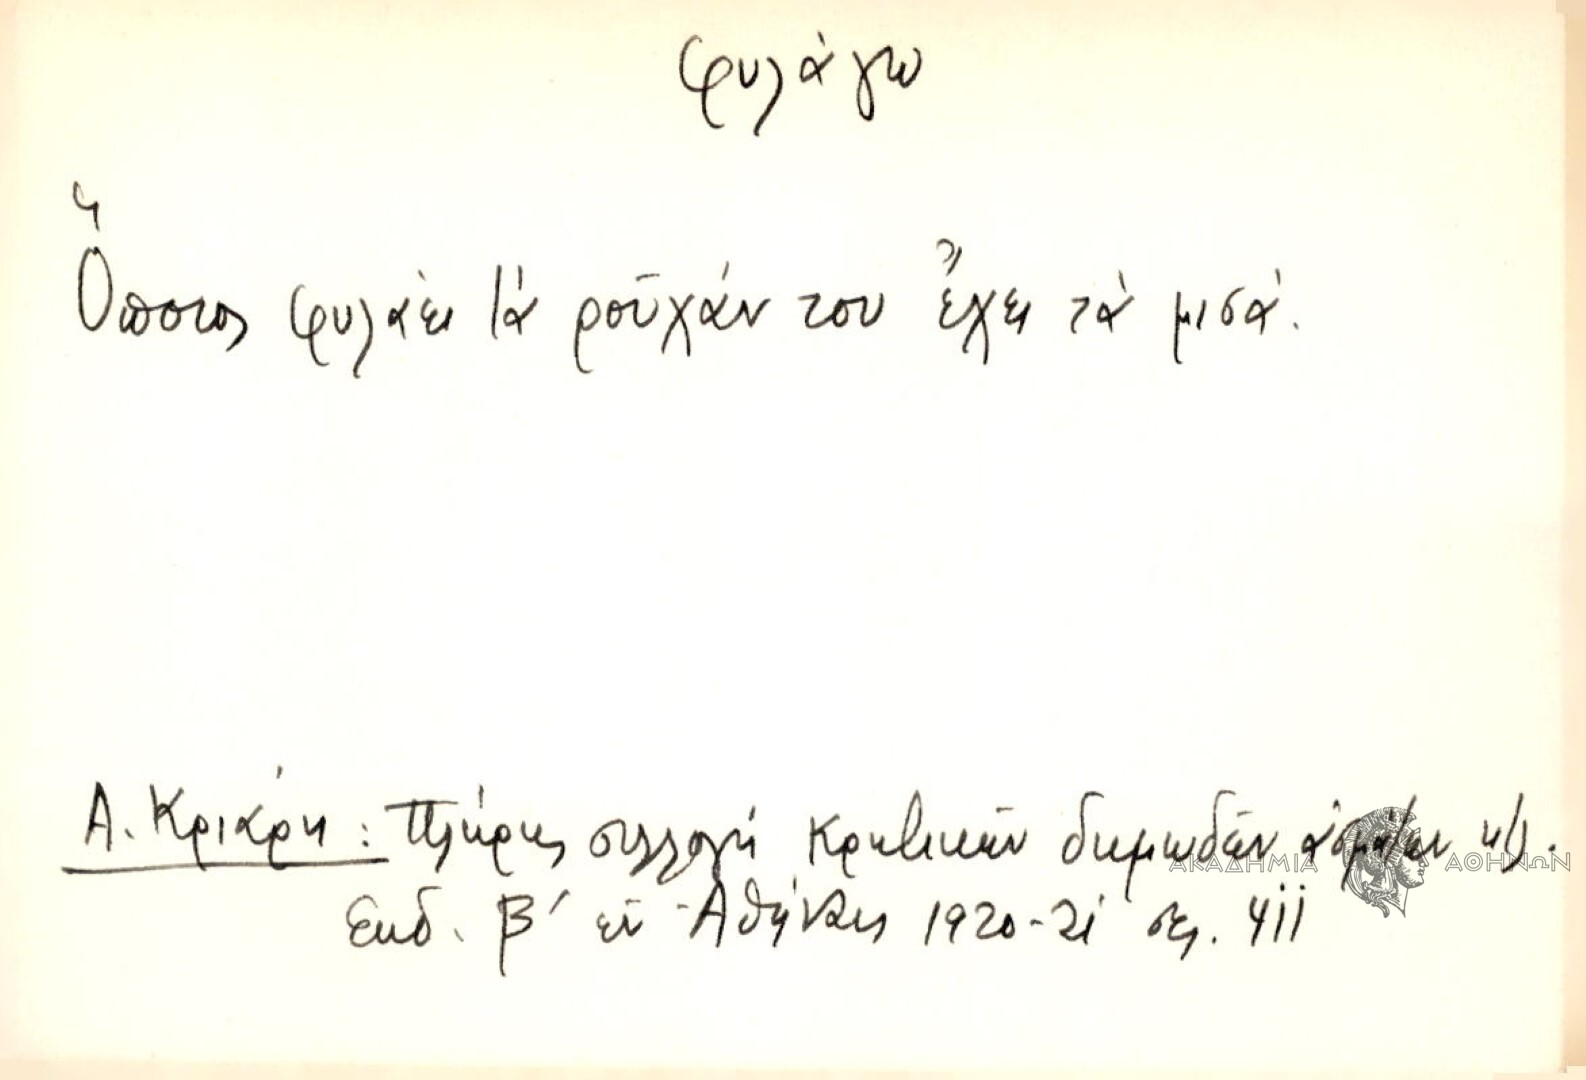 φυλάγω
Ὅποιος φυλάει τὰ ροῦχάν του ἔχει τὰ μισά.
Α. Κριάρη: Πλήρης συλλογή Κρητικῶν δημωδῶν ἀσμάτων κτλ.
Ἐκδ. β′ ἐν Ἀθήναις 1920-21 σελ. 411
ΑΚΑΔΗΜΙΑ ΑΘΗΝΩΝ